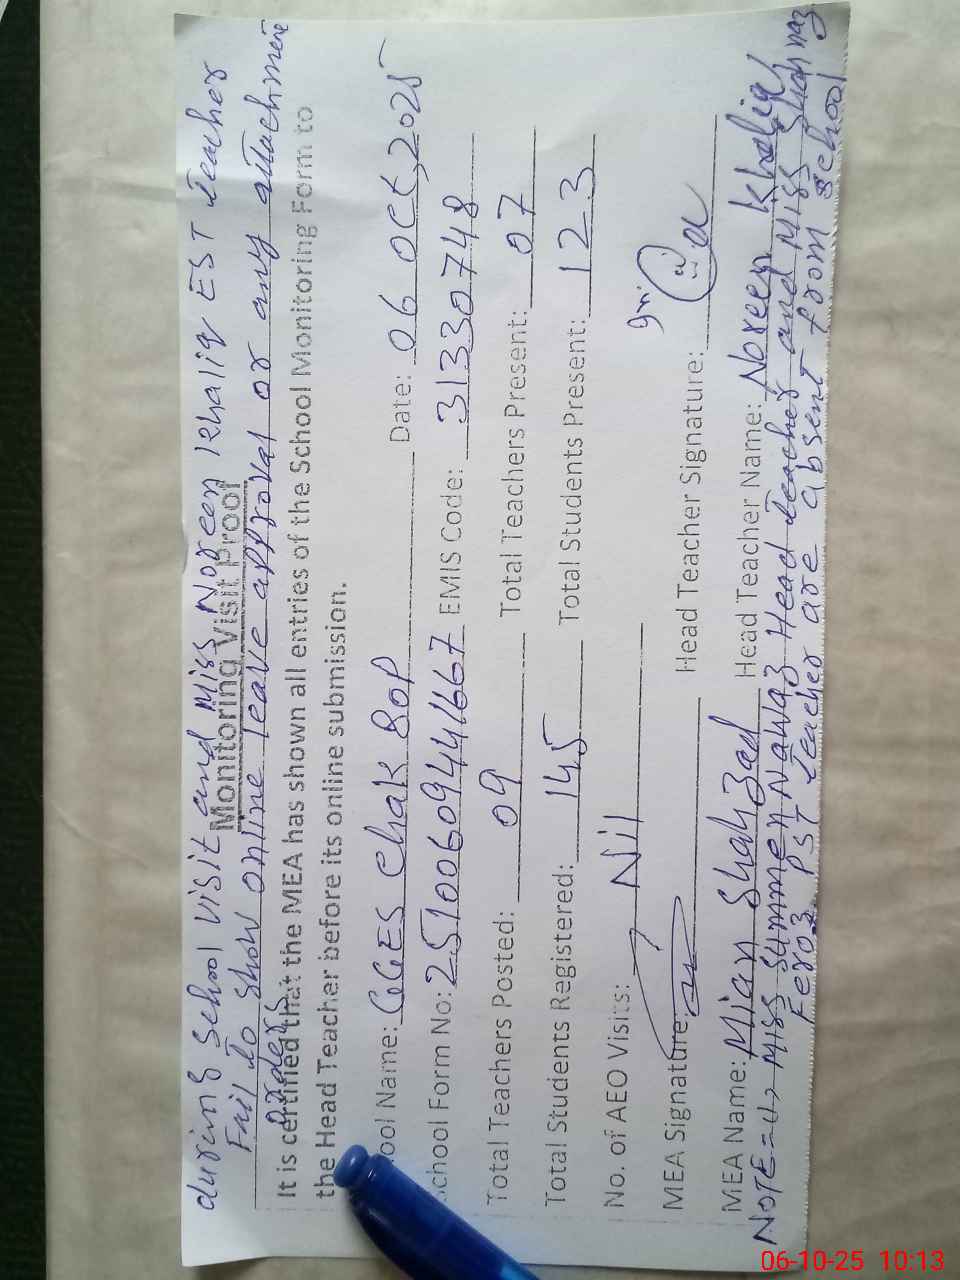 during school visit and Miss Noreen Khaliq EST Teacher
Fail to show online leave approval or any attachment
orders
Monitoring Visit Proof
It is certified that the MEA has shown all entries of the School Monitoring Form to
the Head Teacher before its online submission.
ool Name: GGES Chak BOP Date: 06 Oct, 2025
School Form No: 251006094441667 EMIS Code: 31330748
Total Teachers Posted: 09 Total Teachers Present: 07
Total Students Registered: 145 Total Students Present: 123
No. of AEO Visits: Nil
MEA Signature: Head Teacher Signature:
MEA Name: Mian Shahzad Head Teacher Name: Noreen Khaliq
NOTE= Miss Summen Nawaz Head Teacher and Miss Shahnaz
Feroz PST Teacher are absent from school
06-10-25 10:13